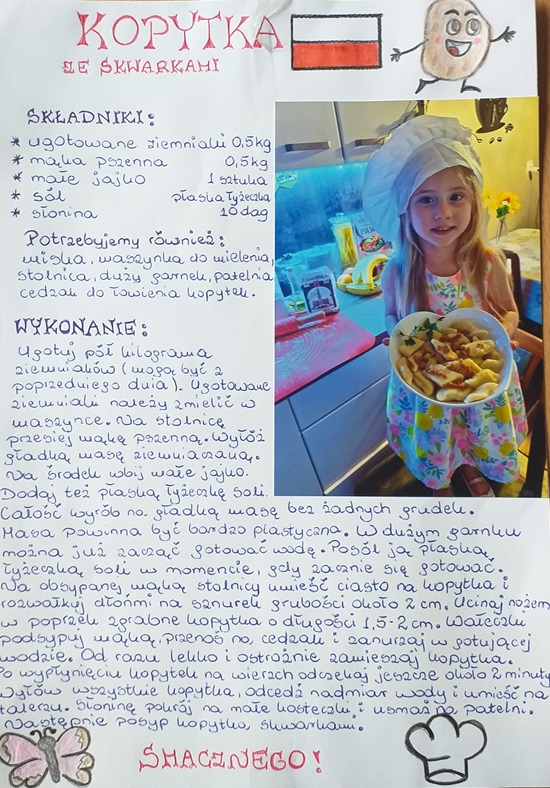 KOPYTKA
ZE SKWARKAMI
SKŁADNIKI:
* ugotowane ziemniaki 0,5kg
* mąka pszenna 0,5kg
* małe jajko 1 sztuka
* sól płaska łyżeczka
* słonina 10 dag
Potrzebujemy również:
miska, maszynka do mielenia,
stolnica, duży garnek, patelnia
cedzak do łowienia kopytek.
WYKONANIE:
Ugotuj pół kilograma
ziemniaków (mogą być z
poprzedniego dnia). Ugotowane
ziemniaki należy zmielić w
maszynce. Na stolnicę
przesiej mąkę pszenną. Wyłóż
gładką masę ziemniaczaną.
Na środek wbij małe jajko.
Dodaj też płaską łyżeczkę soli.
Całość wyrób na gładką masę bez żadnych grudek.
Masa powinna być bardzo plastyczna. W dużym garnku
można już zacząć gotować wodę. Posól ją płaską
łyżeczką soli w momencie, gdy zacznie się gotować.
Na obsypanej mąką stolnicy umieść ciasto na kopytka i
rozwałkuj dłońmi na sznurek grubości około 2 cm. Ucinaj nożem
w poprzek zgrabne kopytka o długości 1,5-2 cm. Wałeczki
podsypuj mąką, przenoś na cedzaki i zanurzaj w gotującej
wodzie. Od razu lekko i ostrożnie zamieszaj kopytka.
Po wypłynięciu kopytek na wierzch odczekaj jeszcze około 2 minuty
Wyłów wszystkie kopytka, odcedź nadmiar wody i umieść na
talerzu. Słoninę pokrój na małe kosteczki i usmaż na patelni.
Następnie posyp kopytka skwarkami.
SMACZNEGO!